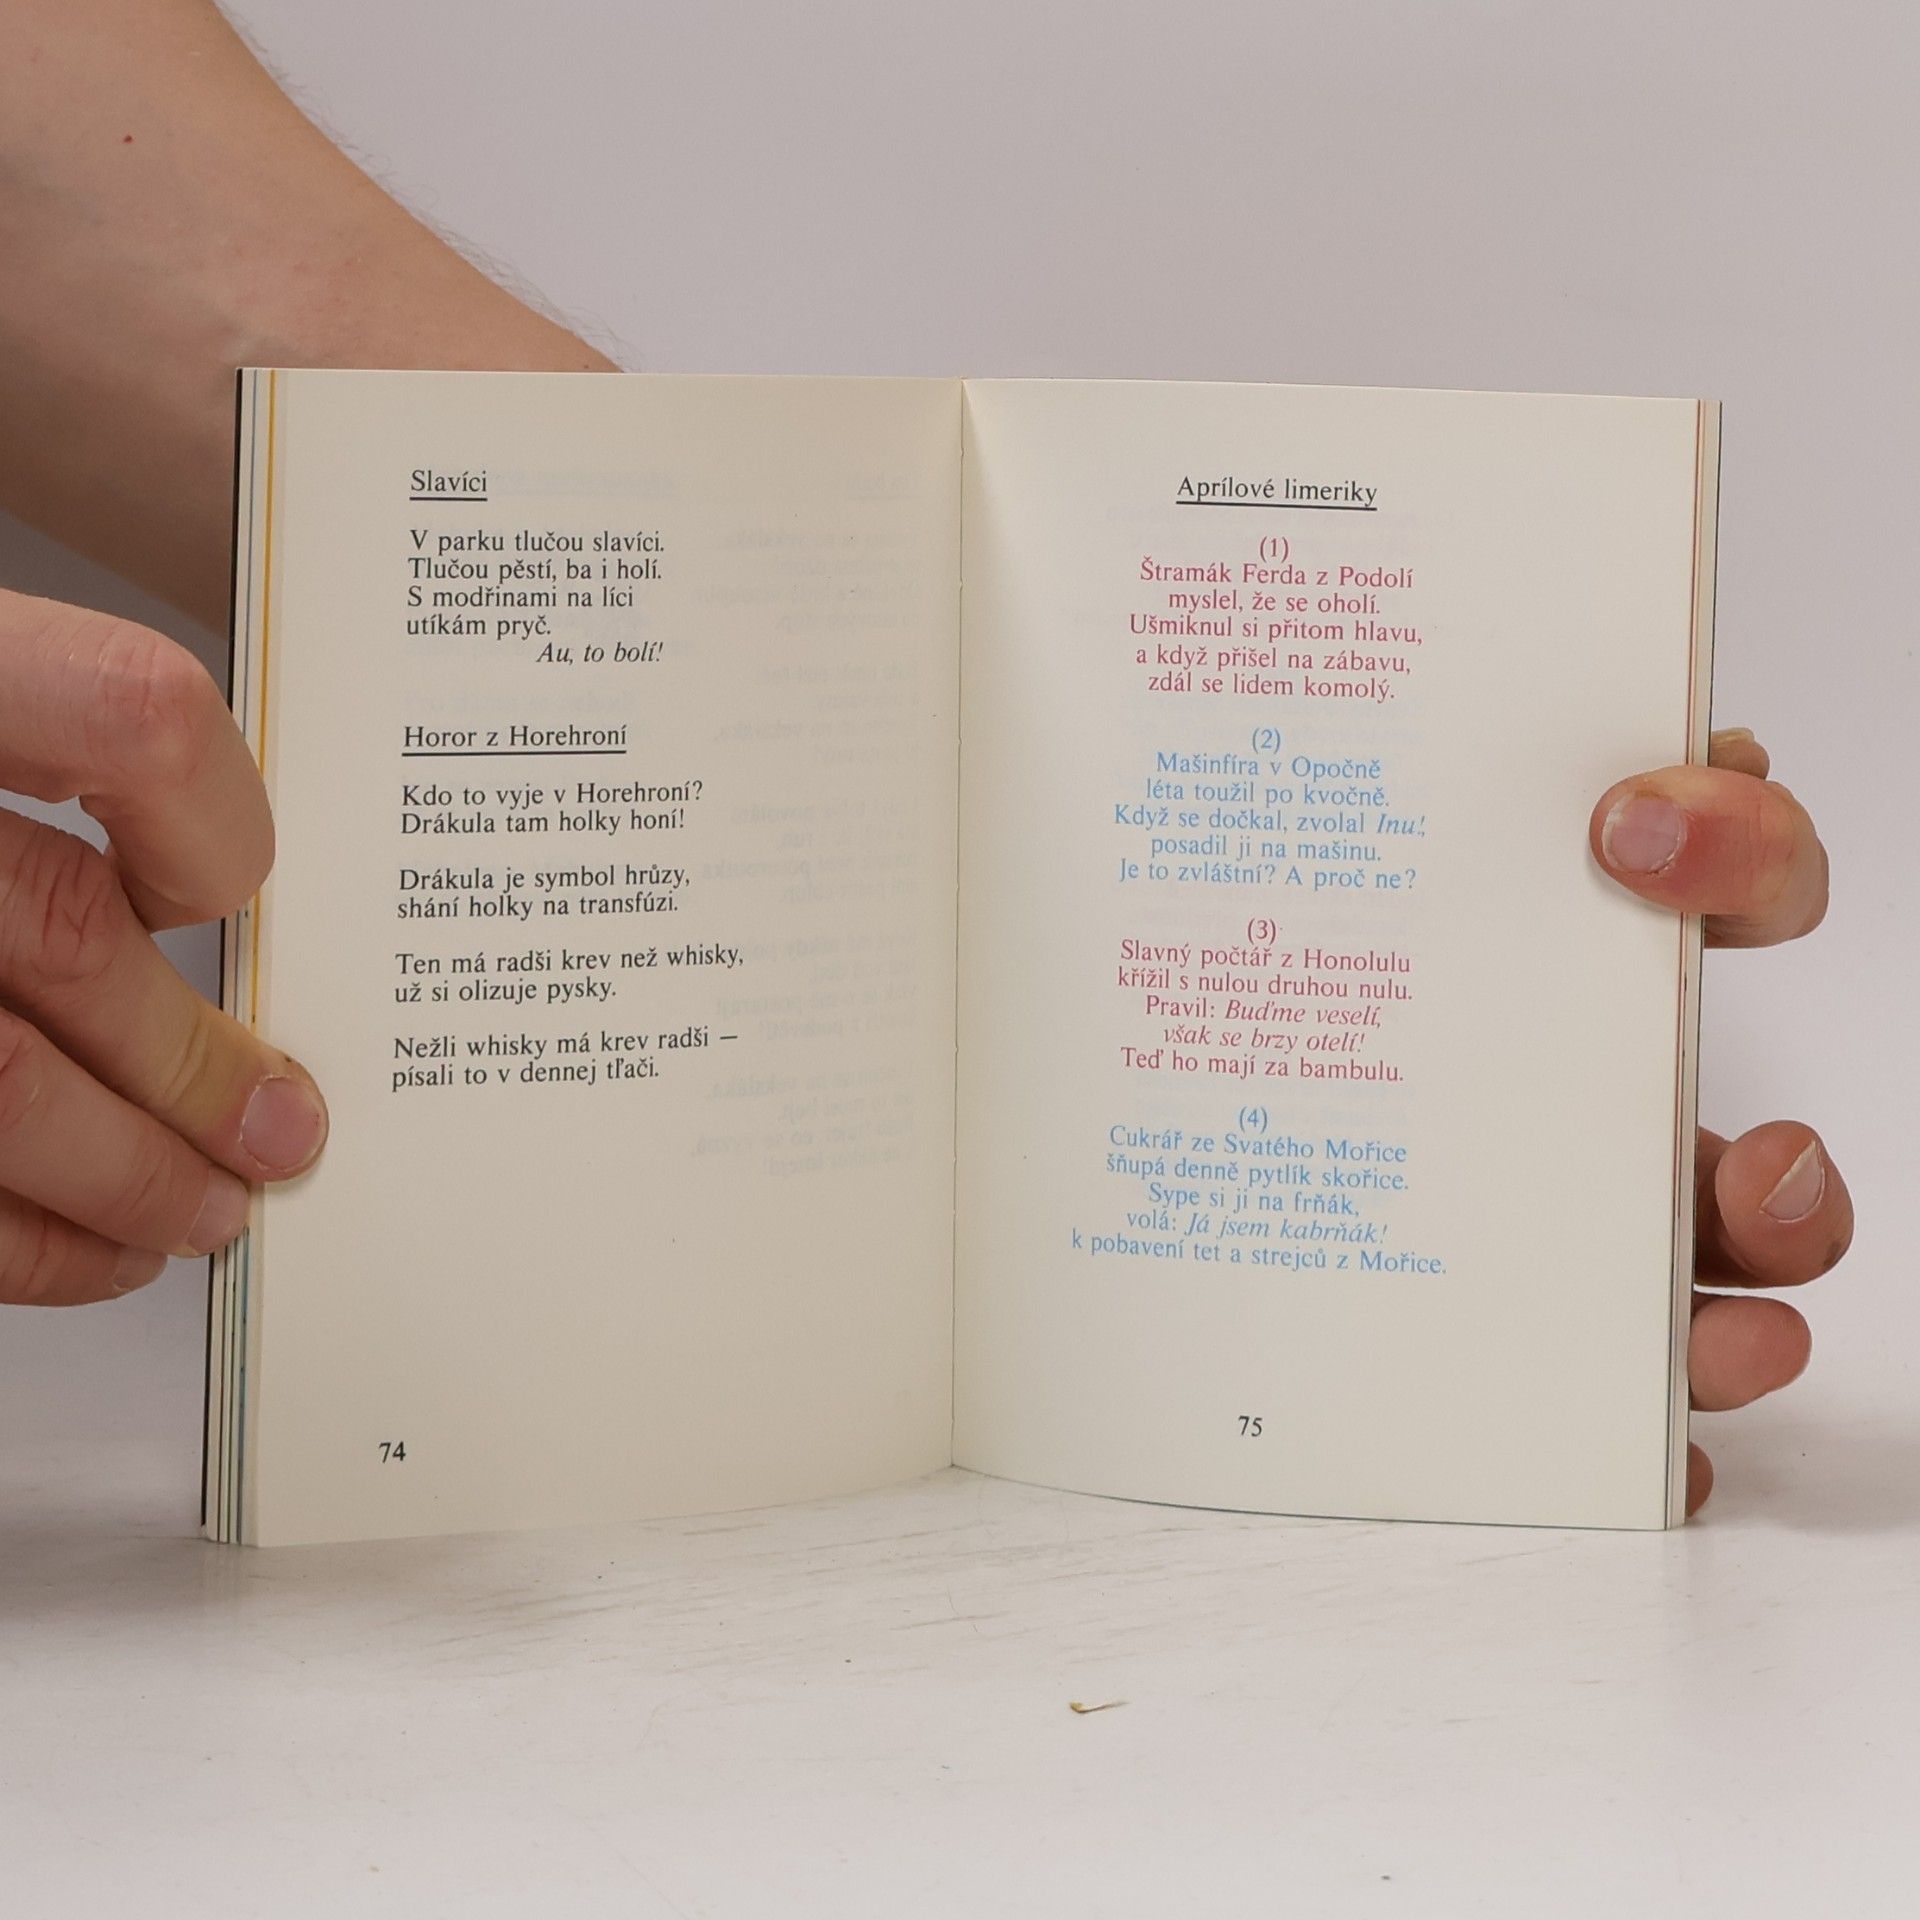 Slavíci
V parku tlučou slavíci.
Tlučou pěstí, ba i holí.
S modřinami na líci
utíkám pryč.
Au, to bolí!
Horor z Horehroní
Kdo to vyje v Horehroní?
Drákula tam holky honí!
Drákula je symbol hrůzy,
shání holky na transfúzi.
Ten má radši krev než whisky,
už si olizuje pysky.
Nežli whisky má krev radši —
písali to v dennej tľači.
74
Aprílové limeriky
(1)
Štramák Ferda z Podolí
myslel, že se oholí.
Ušmiknul si přitom hlavu,
a když přišel na zábavu,
zdál se lidem komolý.
(2)
Mašinfíra v Opočně
léta toužil po kvočně.
Když se dočkal, zvolal Inu!,
posadil ji na mašinu.
Je to zvláštní? A proč ne?
(3)
Slavný počtář z Honolulu
křížil s nulou druhou nulu.
Pravil: Buďme veselí,
však se brzy otelí!
Teď ho mají za bambulu.
(4)
Cukrář ze Svatého Mořice
šňupá denně pytlík skořice.
Sype si ji na frňák,
volá: Já jsem kabrňák!
k pobavení tet a strejců z Mořice.
75